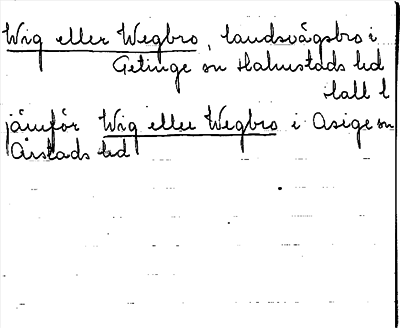 Wig eller Wegbro, landsvägsbro i
Getinge sn Halmstads hd
Hall l
jämför Wig eller Wegbro i Asige sn
Årstads hd